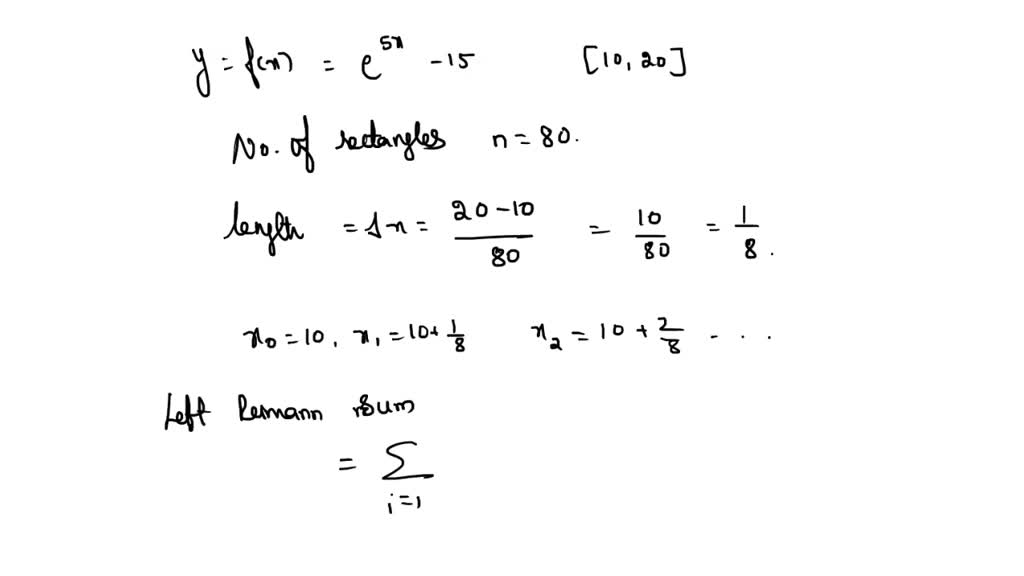 y = f(x) = e^{5x} - 15 [10, 20]
No. of rectangles n = 80.
length = Δx = \frac{20 - 10}{80} = \frac{10}{80} = \frac{1}{8}.
x_0 = 10, x_1 = 10 + \frac{1}{8} x_2 = 10 + \frac{2}{8} . . .
Left Remann Sum
= \sum_{i=1}